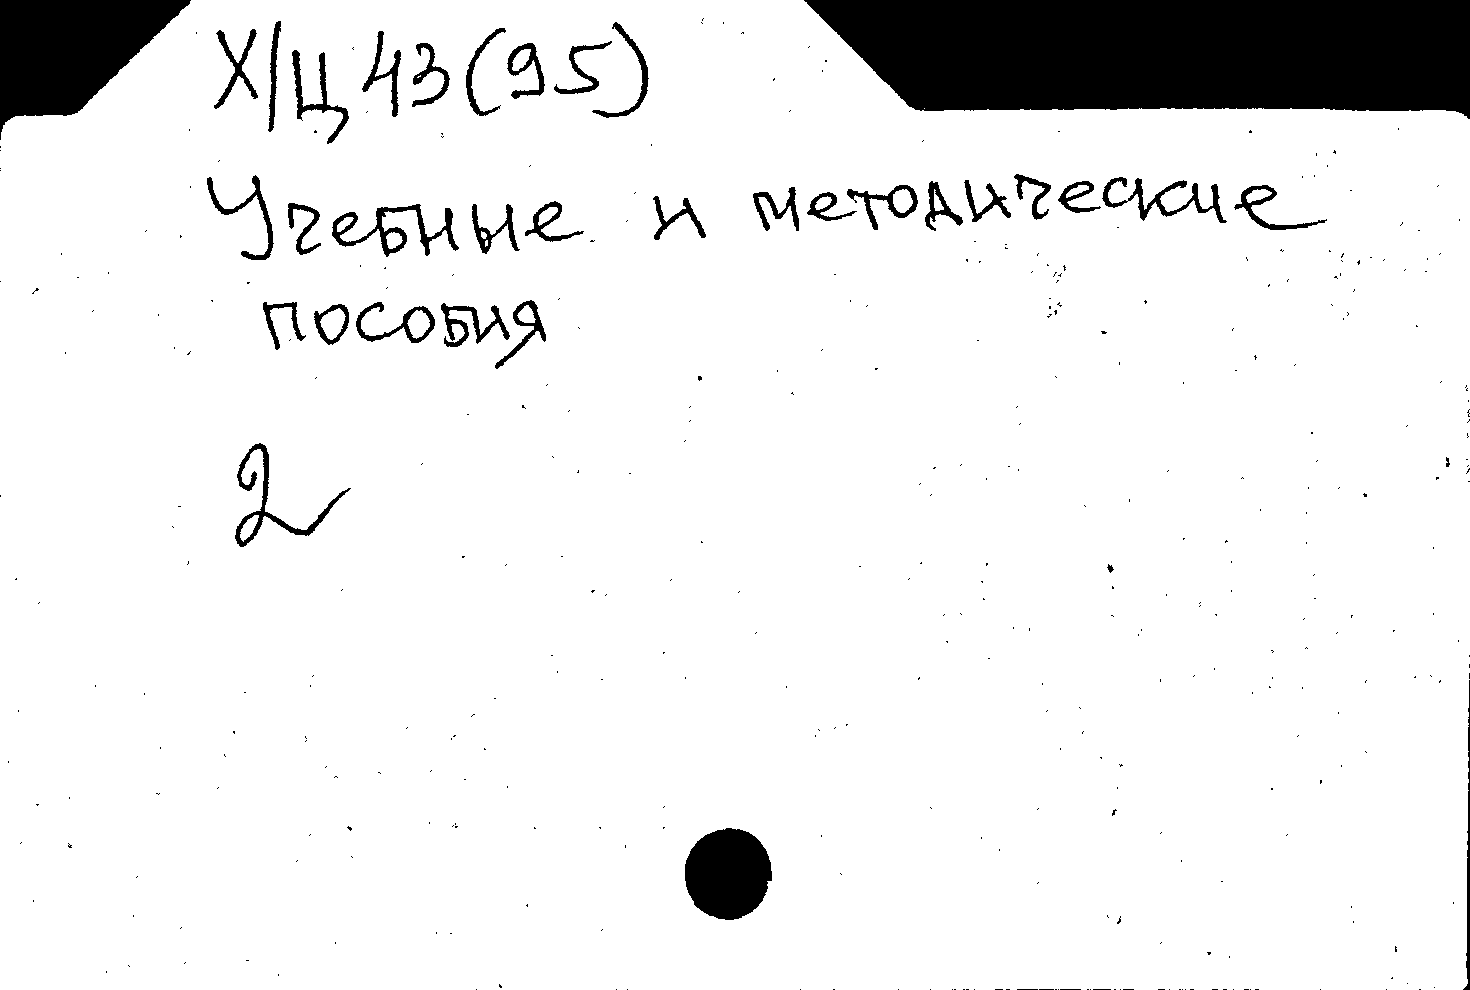 Х/Ц43(95)
Учебные и методические
пособия
2